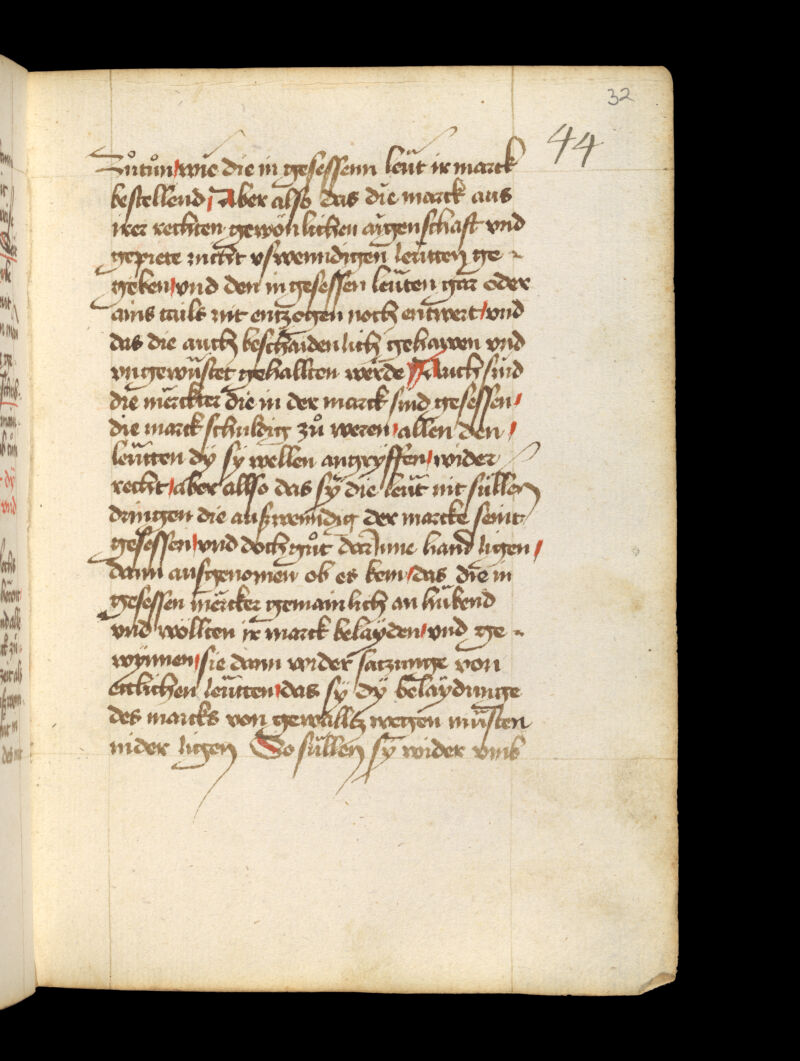 32
44
Zůtůn / wie die in gesessenn leüt ir marck
bestellend / Aber also das die marck aus
irer rechten gewönlichen aigenschaft vnd
gepiete nicht vswenndigen leütten ge-
geben / vnd den in gesessen leüten gar oder
ains tails nit entzogen noch entwert / vnd
das die auch beschaidenlich gehaywen vnd
vngewüstet gehallten werde Auch sind
die mercker die in der marck sind gesessen /
die marck schuldig zů weren / allen den /
leütten dy sy wellen angryffen / wider
recht / aber allso das sy die leüt nit süllen
dringen die außwenndig der marcke seint
gesessen / vnd doch gůt dar Inne hand ligen /
dann ausgenomen ob es kem / das die in
gesessen mercker gemainlich an hübend
vnd wollten ir marck belayden / vnd ge-
wynnen / sie dann wider satzunge von
ettlichen leütten / das sy dy belaydunge
des marcks von gewalltz wegen müsten
nider ligen So süllen sy wider vmb